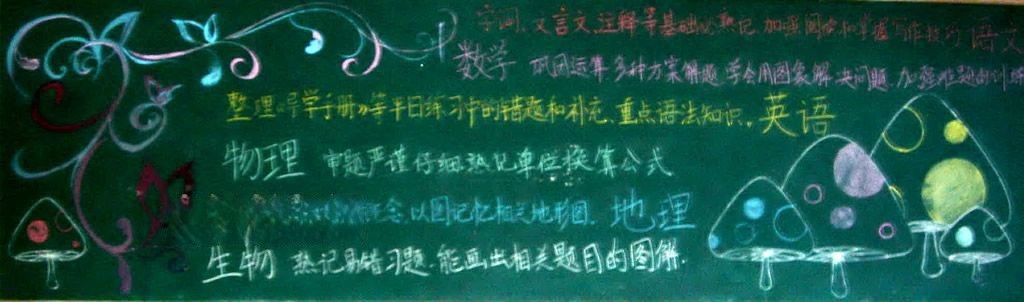 字词、文言文、注释等基础必熟记,加强阅读和掌握写作技巧 语文
数学 巩固运算多种方案解题,学会用图象解决问题,加强难题的训练
整理《导学手册》等平日练习中的错题和补充、重点语法知识。英语
物理 审题严谨仔细熟记单位换算公式
概念,以图记忆相关地形图. 地理
生物 熟记易错习题.能画出相关题目的图解.